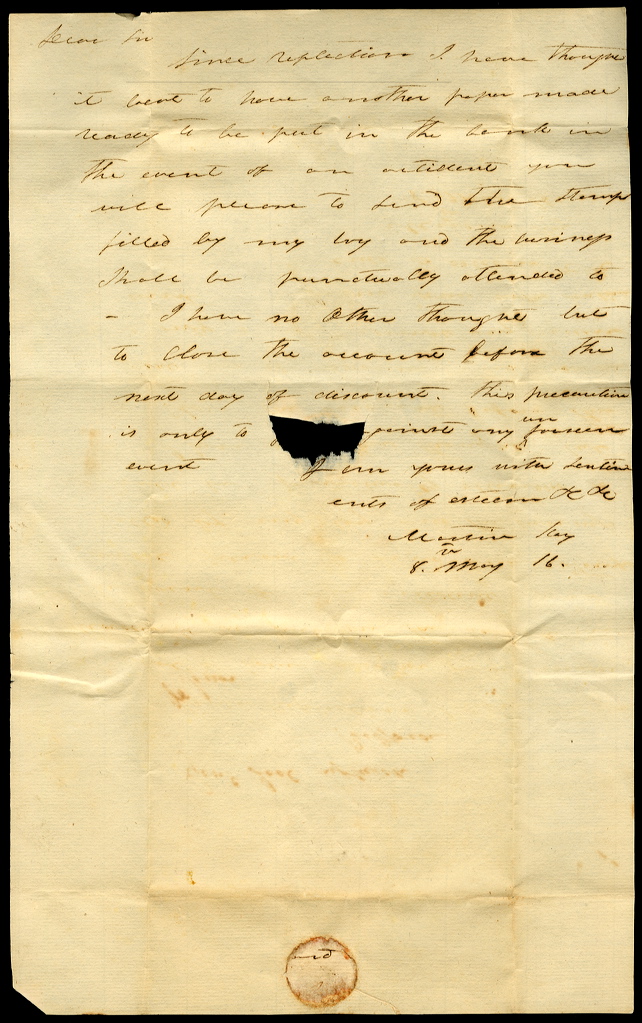 Dear Sir
Since reflection I have thought
it best to have another paper made
ready to be put in the bank in
the event of an accident you
will please to send the stamp
filled by my boy and the business
shall be punctually attended to
- I have no Other thought but
to Close the account before the
next day of discount. this precaution
is only to against any un forseen
event I am yours with sentim
ents of esteem &c &c
Martin Kay
8.th May 16.